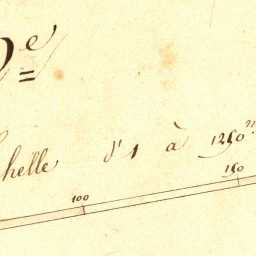 e
chelle d'1 à 1250
100 150